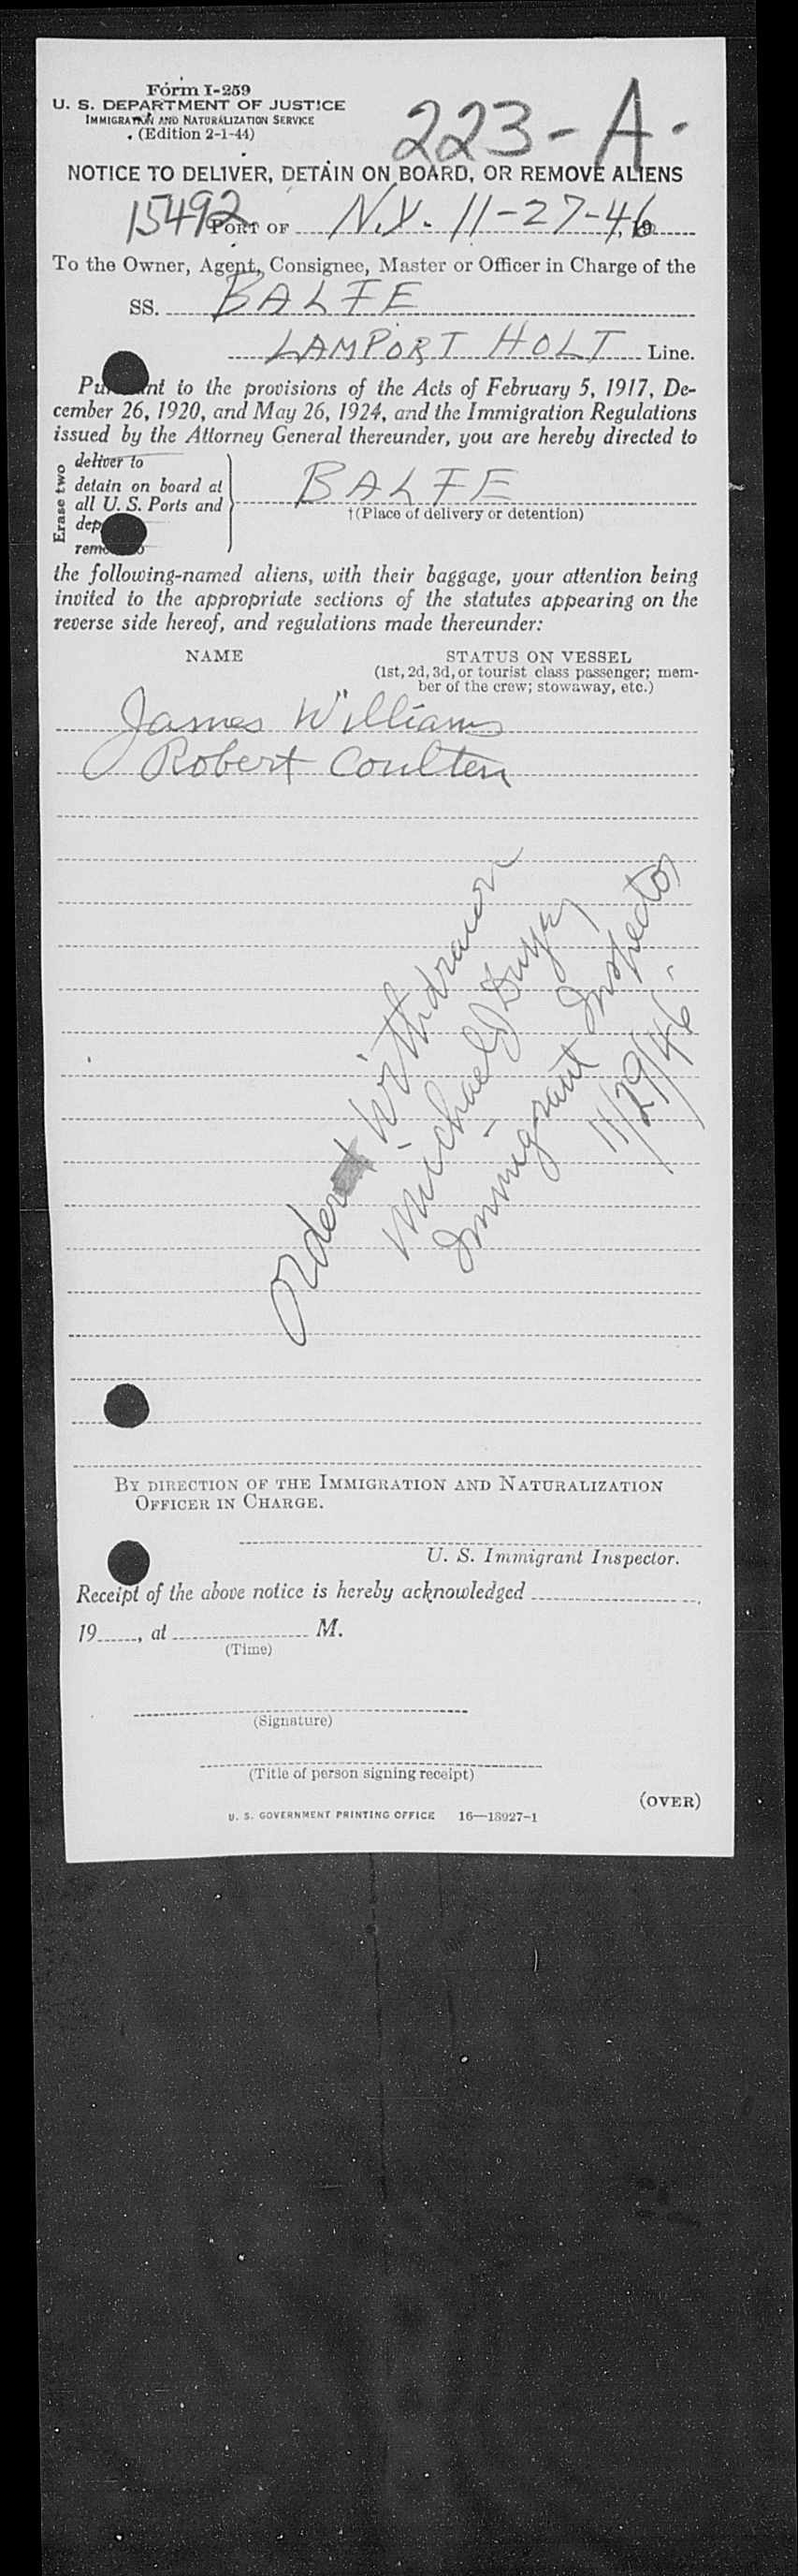 Form I-259
U. S. DEPARTMENT OF JUSTICE
IMMIGRATION AND NATURALIZATION SERVICE
(Edition 2-1-44)
223-A-
NOTICE TO DELIVER, DETAIN ON BOARD, OR REMOVE ALIENS
15492 PORT OF N.Y. 11-27-46, 19
To the Owner, Agent, Consignee, Master or Officer in Charge of the
SS. BALFE
LAMPORT HOLT Line.
Pu nt to the provisions of the Acts of February 5, 1917, De-
cember 26, 1920, and May 26, 1924, and the Immigration Regulations
issued by the Attorney General thereunder, you are hereby directed to
Erase two
deliver to
detain on board at
all U. S. Ports and
dep
remo o
BALFE
†(Place of delivery or detention)
the following-named aliens, with their baggage, your attention being
invited to the appropriate sections of the statutes appearing on the
reverse side hereof, and regulations made thereunder:
NAME STATUS ON VESSEL
(1st, 2d, 3d, or tourist class passenger; mem-
ber of the crew; stowaway, etc.)
James Williams
Robert Coulten
Order Withdrawn
Michael J Duffy
Immigrant Inspector
11/29/46
BY DIRECTION OF THE IMMIGRATION AND NATURALIZATION
OFFICER IN CHARGE.
U. S. Immigrant Inspector.
Receipt of the above notice is hereby acknowledged
19, at M.
(Time)
(Signature)
(Title of person signing receipt)
(OVER)
U. S. GOVERNMENT PRINTING OFFICE 16—18927-1